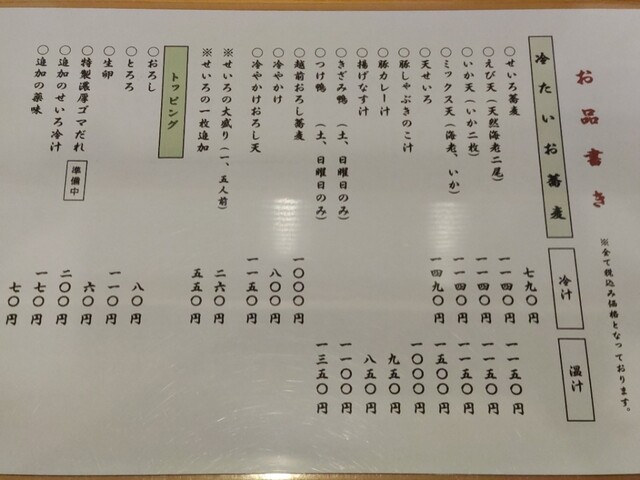 お品書き
※全て税込み価格となっております。
冷たいお蕎麦 冷汁 温汁
〇せいろ蕎麦 七九〇円
〇えび天（天然海老二尾） 一一四〇円 一一五〇円
〇いか天（いか二枚） 一一四〇円 一一五〇円
〇ミックス天（海老、いか） 一一四〇円 一一五〇円
〇天せいろ 一四九〇円 一五〇〇円
〇豚しゃぶきのこ汁 一〇〇〇円
〇豚カレー汁 九五〇円
〇揚げなす汁 八五〇円
〇きざみ鴨 （土、日曜日のみ） 一一〇〇円
〇つけ鴨 （土、日曜日のみ） 一三五〇円
〇越前おろし蕎麦 一〇〇〇円
〇冷やかけ 八〇〇円
〇冷やかけおろし天 一一五〇円
※せいろの大盛り（一、五人前） 二六〇円
※せいろの一枚追加 五五〇円
トッピング
〇おろし 八〇円
〇とろろ 一一〇円
〇生卵 六〇円
〇特製濃厚ゴマだれ 準備中 二〇〇円
〇追加のせいろ冷汁 一七〇円
〇追加の薬味 七〇円